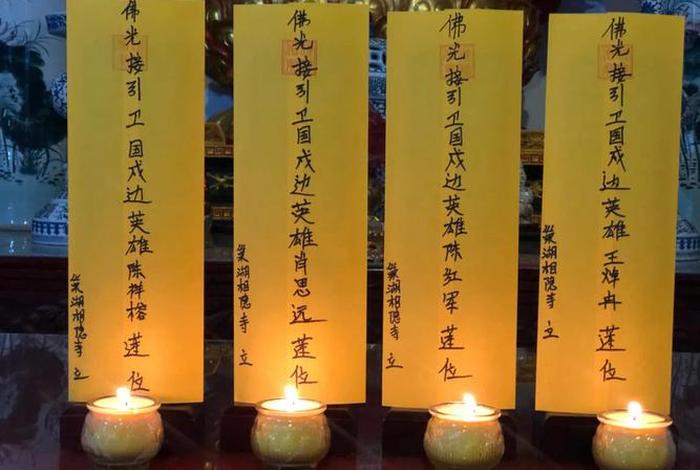 佛光接引卫国戍边英雄陈祥榕莲位
巢湖相隐寺 立
佛光接引卫国戍边英雄肖思远莲位
巢湖相隐寺 立
佛光接引卫国戍边英雄陈红军莲位
巢湖相隐寺 立
佛光接引卫国戍边英雄王焯冉莲位
巢湖相隐寺 立